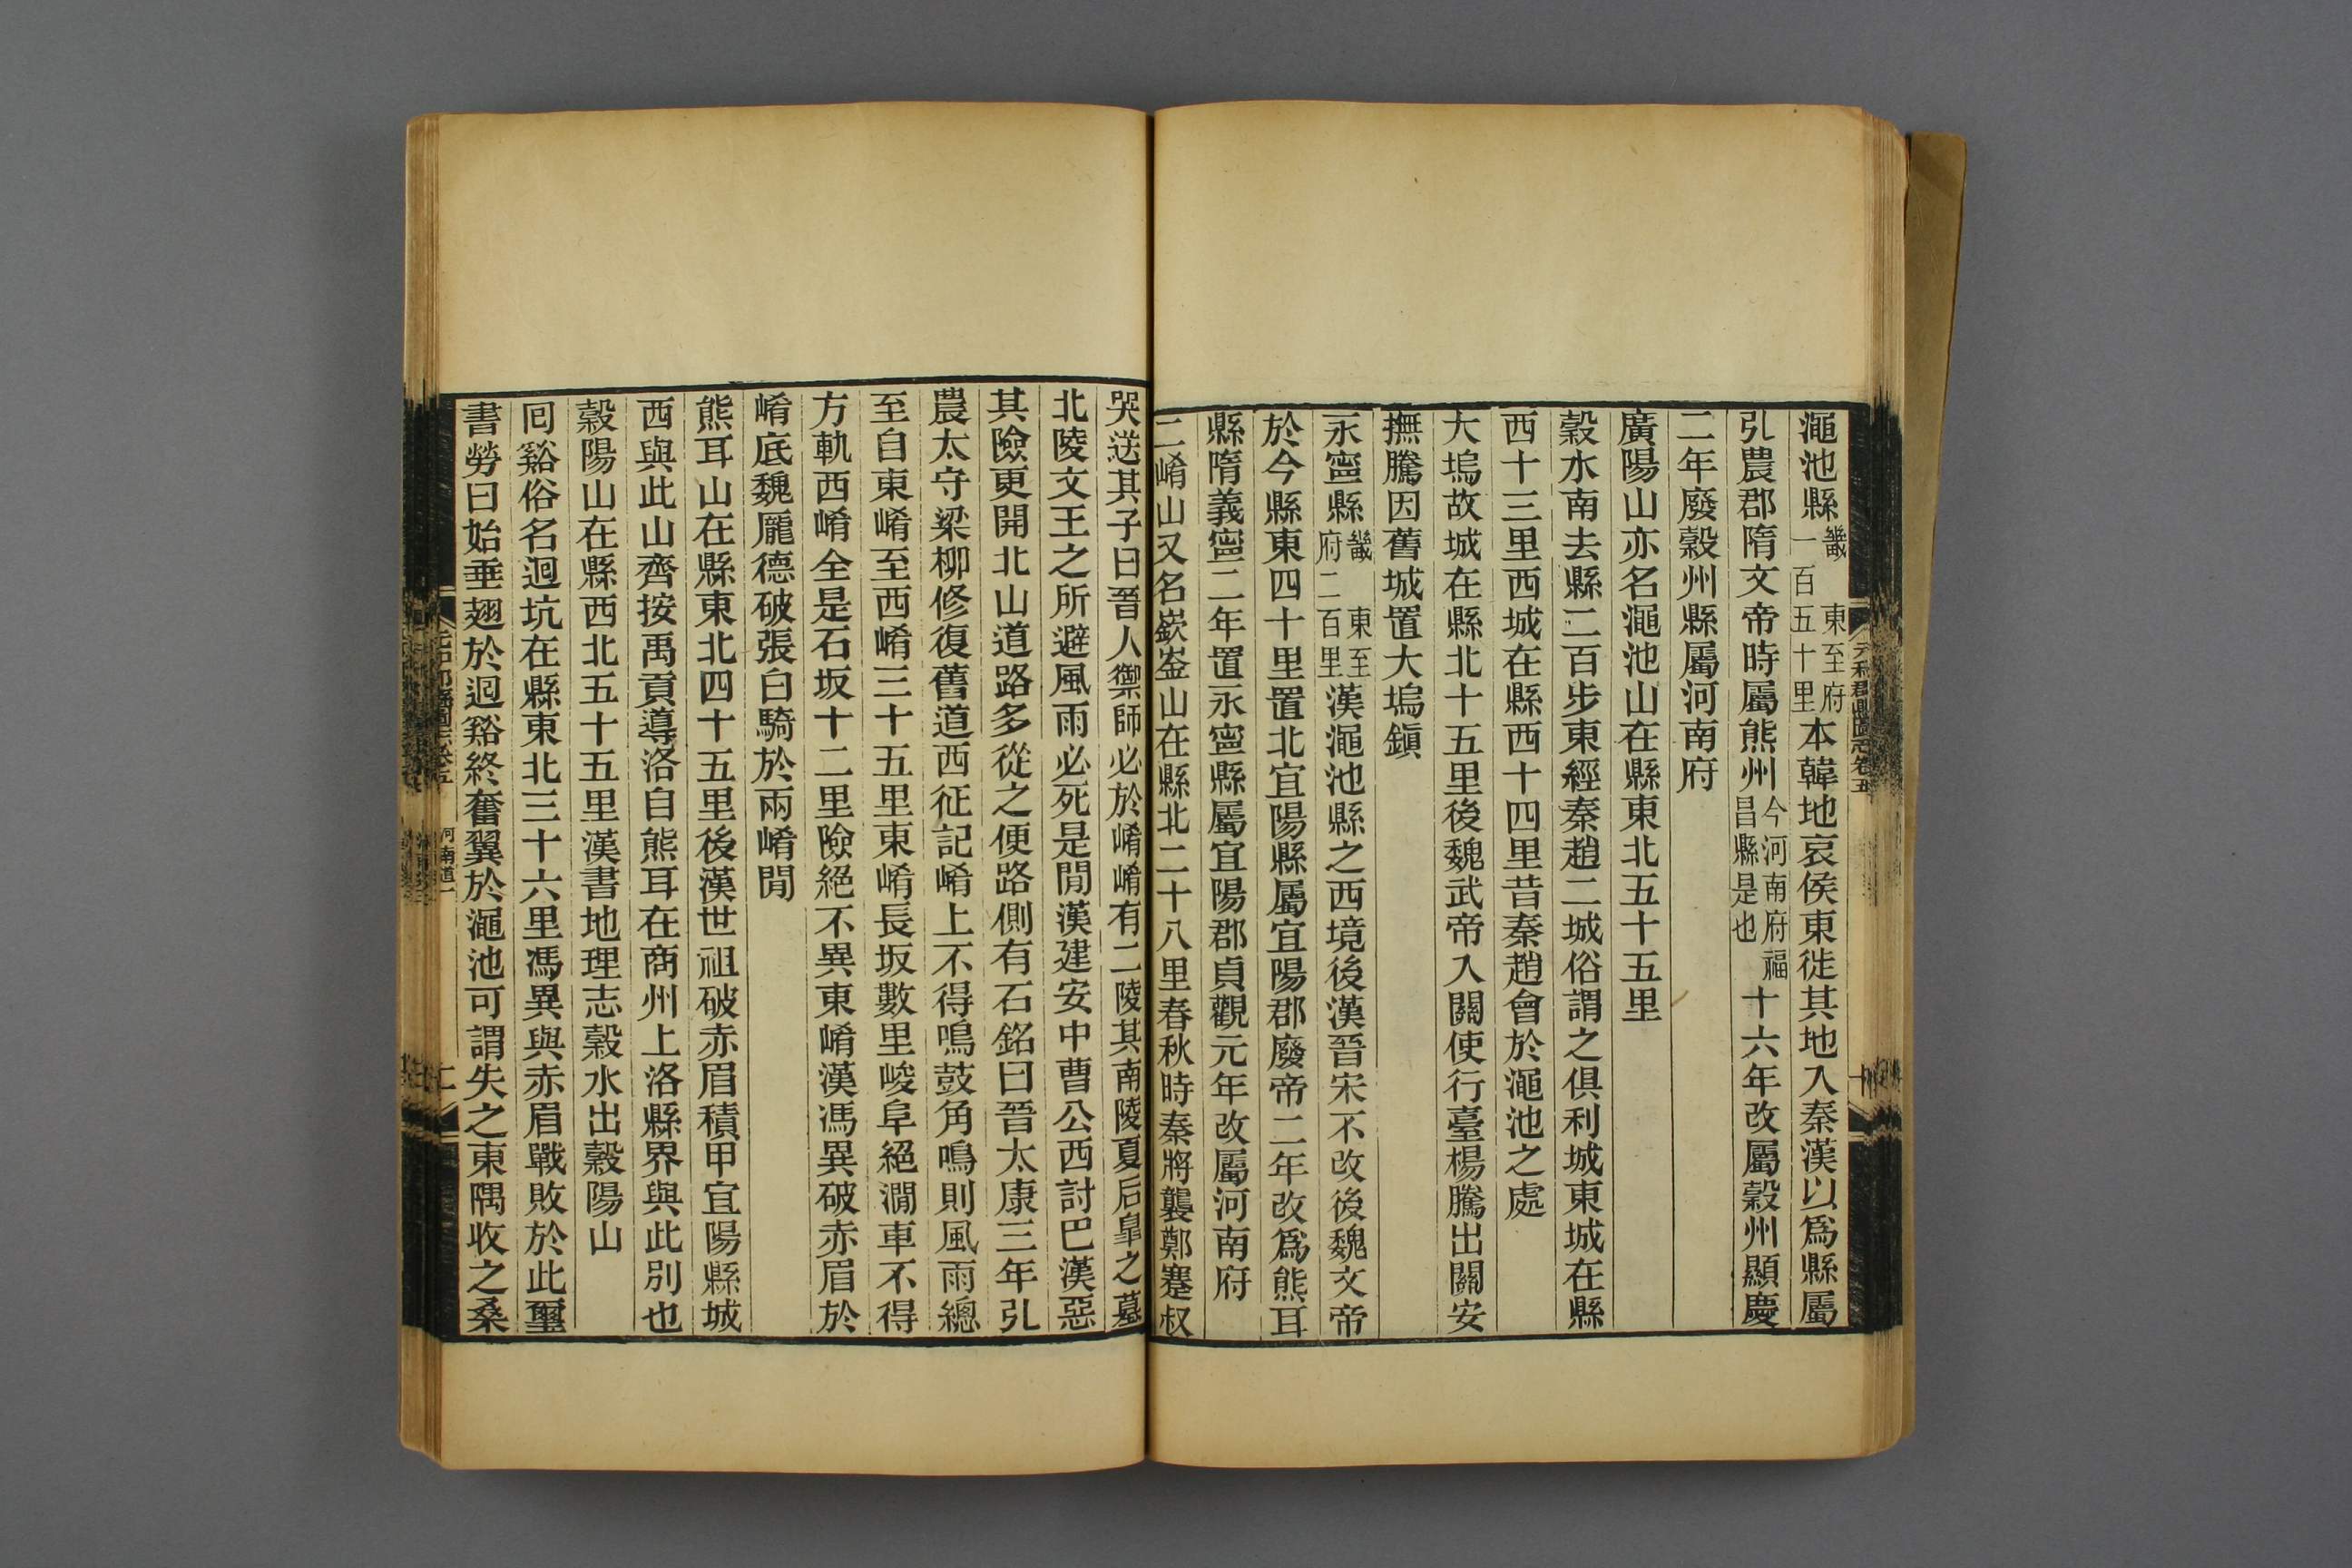 澠池縣畿 東至府一百五十里本韓地哀侯東徙其地入秦漢以爲縣屬
弘農郡隋文帝時屬熊州今河南府福昌縣是也十六年改屬穀州顯慶
二年廢穀州縣屬河南府
廣陽山亦名澠池山在縣東北五十五里
穀水南去縣二百步東經秦趙二城俗謂之俱利城東城在縣
西十三里西城在縣西十四里昔秦趙會於澠池之處
大塢故城在縣北十五里後魏武帝入關使行臺楊騰出關安
撫騰因舊城置大塢鎭
永寧縣畿 東至府二百里漢澠池縣之西境後漢晉宋不改後魏文帝
於今縣東四十里置北宜陽縣屬宜陽郡廢帝二年改爲熊耳
縣隋義寧二年置永寧縣屬宜陽郡貞觀元年改屬河南府
二崤山又名嶔崟山在縣北二十八里春秋時秦將襲鄭蹇叔
哭送其子曰晉人禦師必於崤崤有二陵其南陵夏后皐之墓
北陵文王之所避風雨必死是閒漢建安中曹公西討巴漢惡
其險更開北山道路多從之便路側有石銘曰晉太康三年弘
農太守梁柳修復舊道西征記崤上不得鳴鼓角鳴則風雨總
至自東崤至西崤三十五里東崤長坂數里峻阜絕澗車不得
方軌西崤全是石坂十二里險絕不異東崤漢馮異破赤眉於
崤底魏龐德破張白騎於兩崤閒
熊耳山在縣東北四十五里後漢世祖破赤眉積甲宜陽縣城
西與此山齊按禹貢導洛自熊耳在商州上洛縣界與此別也
穀陽山在縣西北五十五里漢書地理志穀水出穀陽山
回谿俗名迴坑在縣東北三十六里馮異與赤眉戰敗於此璽
書勞曰始垂翅於迴谿終奮翼於澠池可謂失之東隅收之桑
元和郡縣圖志卷五
河南道一